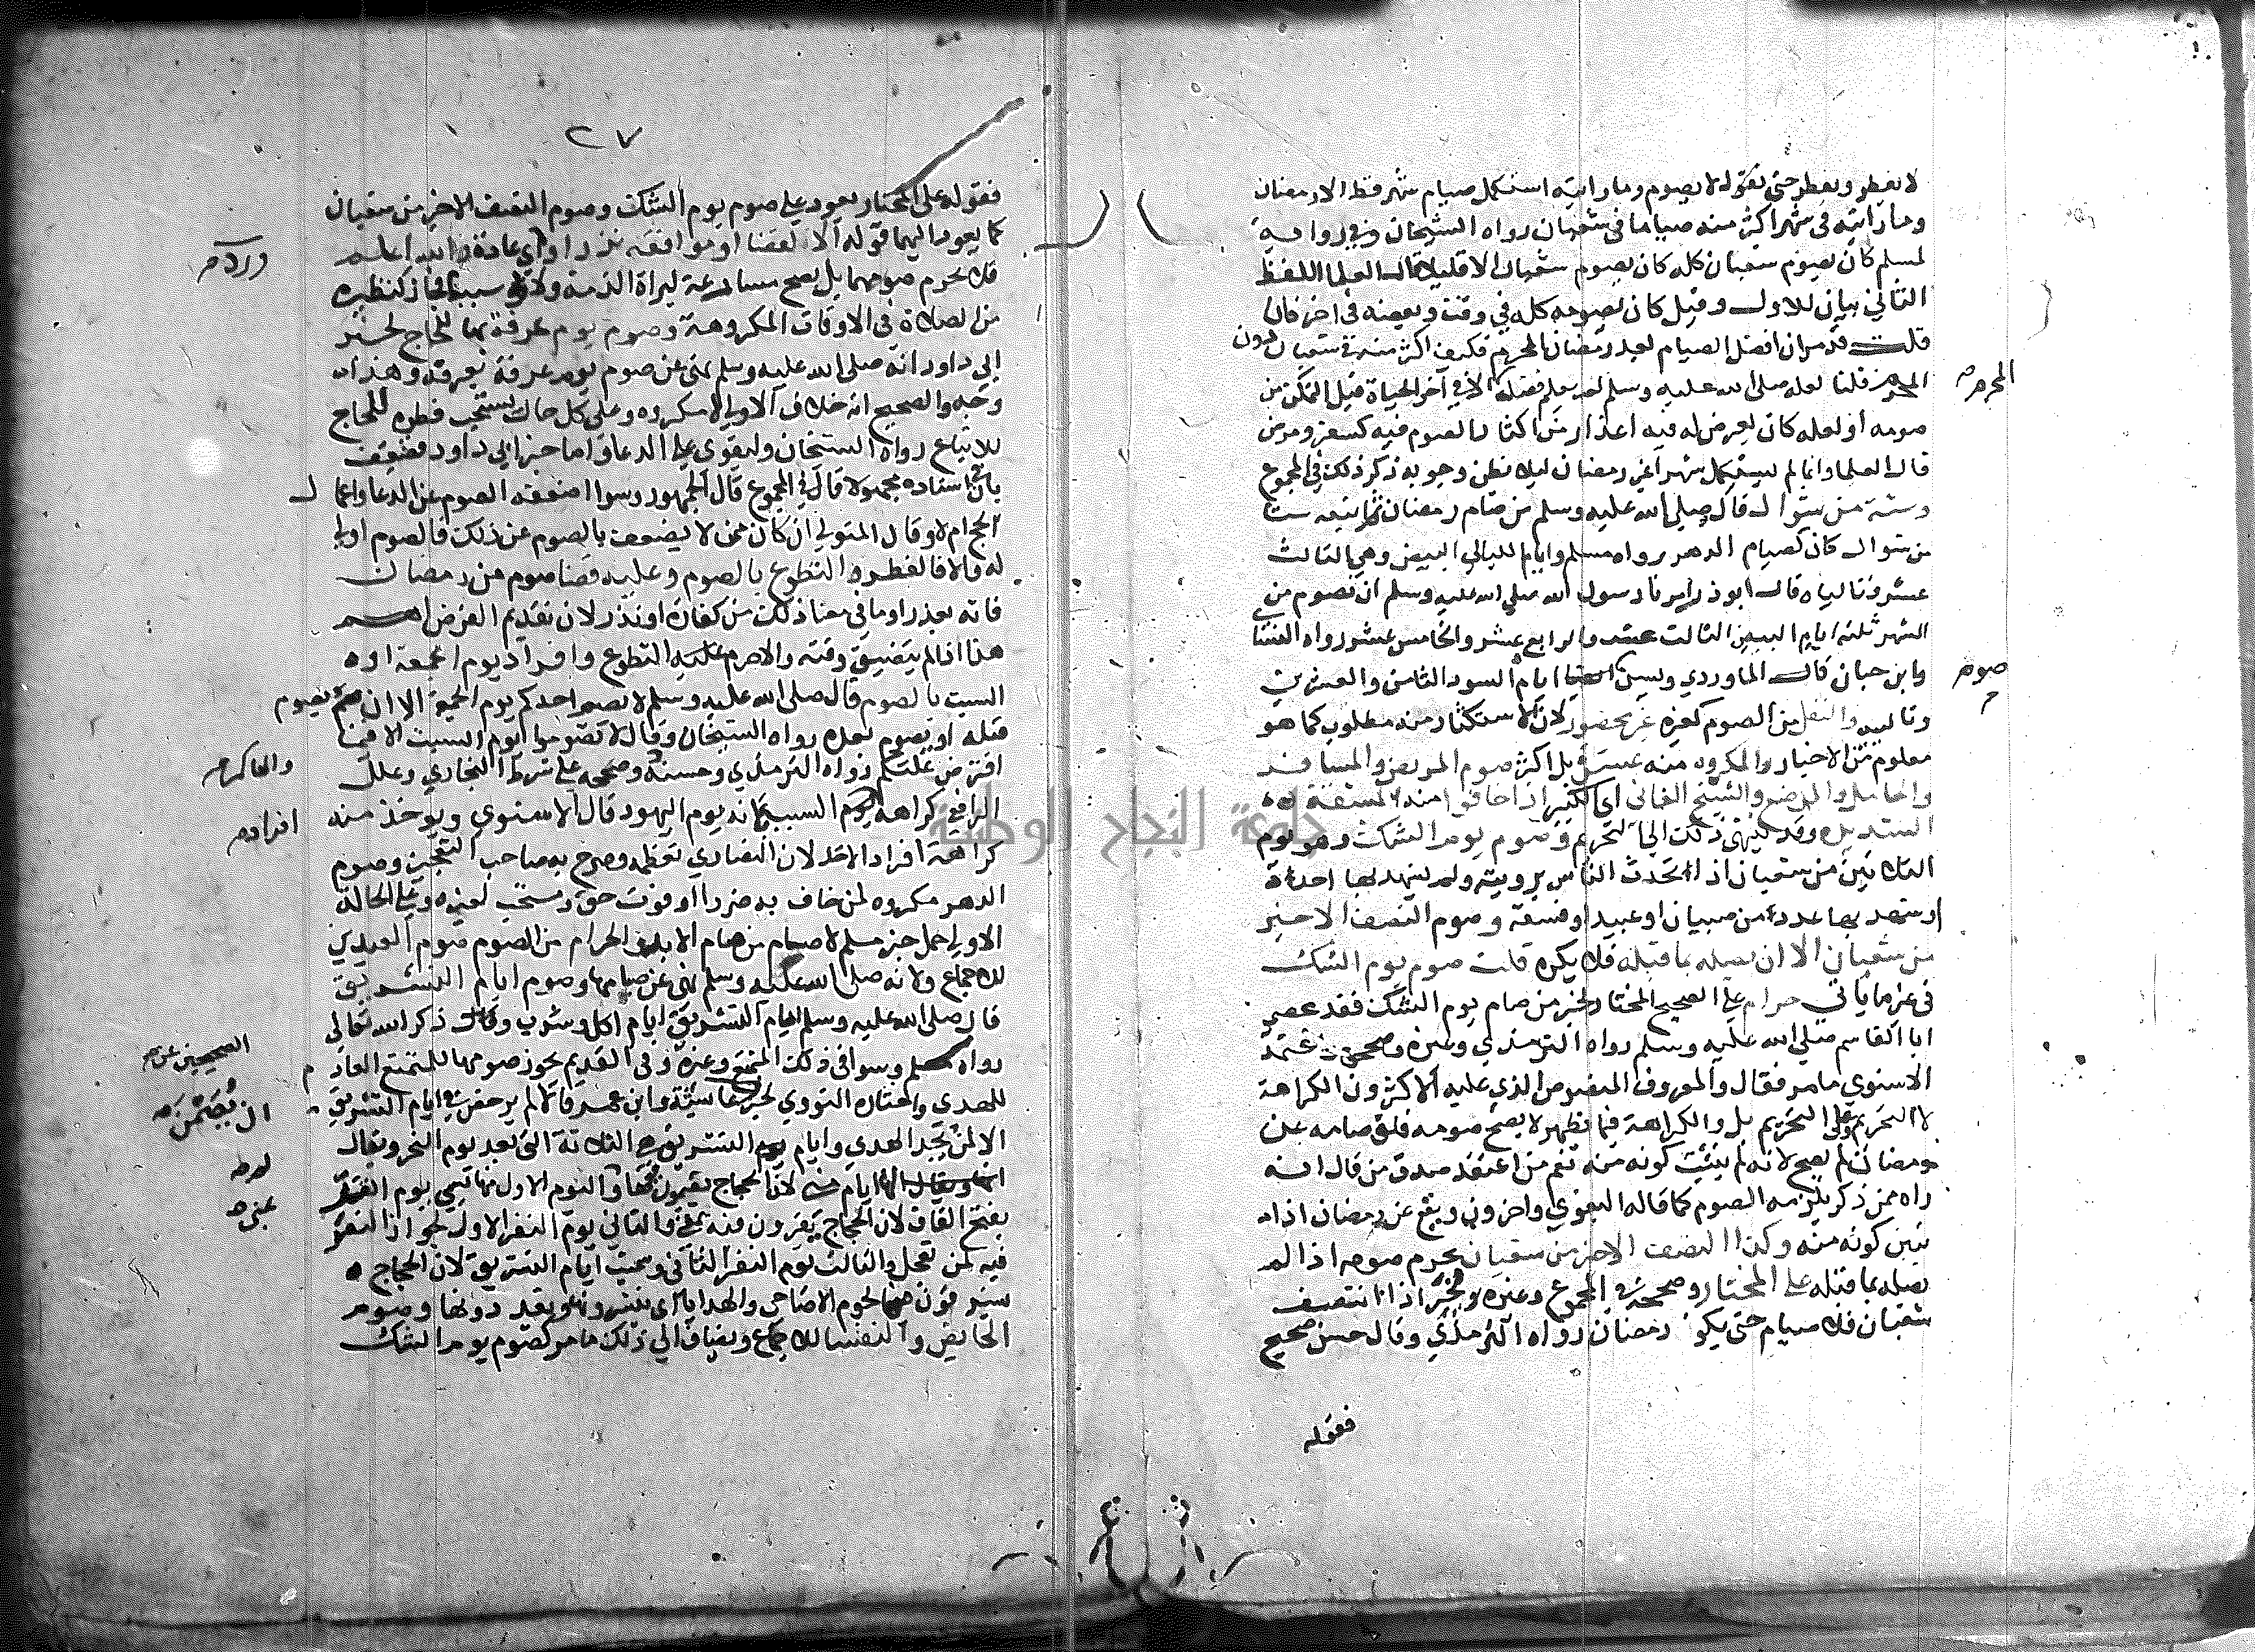 لا يفطر ويفطر حتى نقول لا يصوم وما رايته استكمل صيام شهر قط الا رمضان
وما رايته في شهر اكثر منه صياما في شعبان رواه الشيخان وفي رواية
لمسلم كان يصوم شعبان كله كان يصوم شعبان الا قليلا قال العلما اللفظ
الثاني بيان للاول وقيل كان يصومه كله في وقت وبعضه في اخر فان
قلت قد مر ان افضل الصيام بعد رمضان المحرم فكيف اكثر منه في شعبان دون
المحرم قلنا لعله صلى الله عليه وسلم لم يعلم فضله الا في آخر الحياة قبل التمكن من
المحرم
صومه او لعله كان يعرض له فيه اعذار من اكثار الصوم فيه كسفر ومرض
قال العلما وانما لم يستكمل شهرا غير رمضان ليلا يظن وجوبه ذكر ذلك في المجموع
وستة من شوال قال صلى الله عليه وسلم من صام رمضان ثم اتبعه ستا
من شوال كان كصيام الدهر رواه مسلم وايام الليالي البيض وهي الثالث
عشر وتالياه قال ابو ذر امرنا رسول الله صلى الله عليه وسلم ان نصوم من
الشهر ثلثة ايام البيض الثالث عشر والرابع عشر والخامس عشر رواه النسا
وابن حبان قال الماوردي ويسن ايام السود الثامن والعشرين
صوم
وتالييه والنفل من الصوم كغيره غير محصور لان الاستكثار منه مطلوب كما هو
معلوم من الاخبار والمكروه منه بل اكثر صوم المريض والمسافر
والحامل والمرضع والشيخ الفاني اي الكبير اذا خافوا منه المشقة
الشديدة وقد ينهى ذلك الى التحريم وصوم يوم الشك وهو يوم
الثلاثين من شعبان اذا تحدث الناس برويته ولم يشهد بها احد
او شهد بها عدد من صبيان او عبيد او فسقة وصوم النصف الاخير
من شعبان الا ان يصله بما قبله فلا يكره قلت صوم يوم الشك
في غير ما ياتي حرام على الصحيح المختار لخبر من صام يوم الشك فقد عصى
ابا القاسم صلى الله عليه وسلم رواه الترمذي وغيره وصححوه
الاسنوي ما مر فقال والمعروف المنصوص الذي عليه الاكثرون الكراهة
لا التحريم وعلى التحريم بل والكراهة فيما يظهر لا يصح صومه فلو صامه عن
رمضان لم يصح لانه لم يثبت كونه منه نعم من اعتقد صدق من قال انه
راه ممن ذكر يلزمه الصوم كما قاله البغوي واخرون ويقع عن رمضان اذا
تبين كونه منه وكذا النصف الاخير من شعبان يحرم صومه اذا لم
يصله بما قبله على المختار وصححه في المجموع وغيره لخبر اذا انتصف
شعبان فلا صيام حتى يكون رمضان رواه الترمذي وقال حسن صحيح
فقوله
٢٧
فقوله على المختار يعود على صوم يوم الشك وصوم النصف الاخير من شعبان
كما يعود اليهما قوله الا لقضا او موافقه نذر او عادة والله اعلم
ورد
فلا يحرم صومهما بل يصح مسارعة لبراة الذمة ولان له سببا فجاز كنظيره
من الصلاة في الاوقات المكروهة وصوم يوم عرفة بها للحاج لخبر
ابي داود انه صلى الله عليه وسلم نهى عن صوم يوم عرفة بعرفة وهذا
وجه والصحيح انه خلاف الاولى لا مكروه وعلى كل حال يستحب فطره للحاج
للاتباع رواه الشيخان وليقوى على الدعا واما خبر ابي داود فضعف
بان اسناده مجهولا قال في المجموع قال الجمهور وسوا اضعفه الصوم عن الدعا واعمال
الحج ام لا وقال المتولي ان كان ممن لا يضعف بالصوم عن ذلك فالصوم اولى
له والا فالفطر والتطوع بالصوم وعليه قضا صوم من رمضان
فاته بعذر او ما في معنا ذلك من كفارة او نذر لان تقديم الفرض اهم
هذا اذا لم يتضيق وقته والا حرم عليه التطوع وافراد يوم الجمعة او
السبت بالصوم قال صلى الله عليه وسلم لا يصم احدكم يوم الجمعة الا ان يصوم
قبله او يصوم بعده رواه الشيخان وقال لا تصوموا يوم السبت الا فيما
افترض عليكم رواه الترمذي وحسنه وصححه على شرط البخاري وعلل
والحاكم
الرافعي كراهة يوم السبت بانه يوم اليهود قال الاسنوي ويوخذ منه
افراد
كراهة افراد الاحد لان النصارى تعظمه وصرح به صاحب التعجيز وصوم
الدهر مكروه لمن خاف به ضررا او فوت حق ومستحب لغيره وعلى الحالة
الاولى حمل خبر مسلم لا صام من صام الابد والحرام من الصوم صوم العيدين
للاجماع ولانه صلى الله عليه وسلم نهى عن صيامها وصوم ايام التشريق
قال صلى الله عليه وسلم ايام التشريق ايام اكل وشرب وذكر الله تعالى
رواه مسلم وسوا في ذلك المتمتع وغيره وفي القديم يجوز صومها للمتمتع العادم
الصحيحين عن
للهدي واختاره النووي لخبر عايشة وابن عمر قالا لم يرخص في ايام التشريق
ان يصمن
الا لمن لم يجد الهدي وايام التشريق هي الثلاثة التي بعد يوم النحر ويقال
لم
ايام منى لان الحجاج يقيمون فيها واليوم الاول منها يسمى يوم القر
بفتح القاف لان الحجاج يقرون فيه بمنى والثاني يوم النفر الاول لجواز النفر
بمنى
فيه لمن تعجل والثالث يوم النفر الثاني وسميت ايام التشريق لان الحجاج
يشرقون فيها لحوم الاضاحي والهدايا اي ينشرونها وصوم
الحايض والنفسا للاجماع ويضاف الى ذلك ما مر كصوم يوم الشك
جامعة النجاح الوطنية